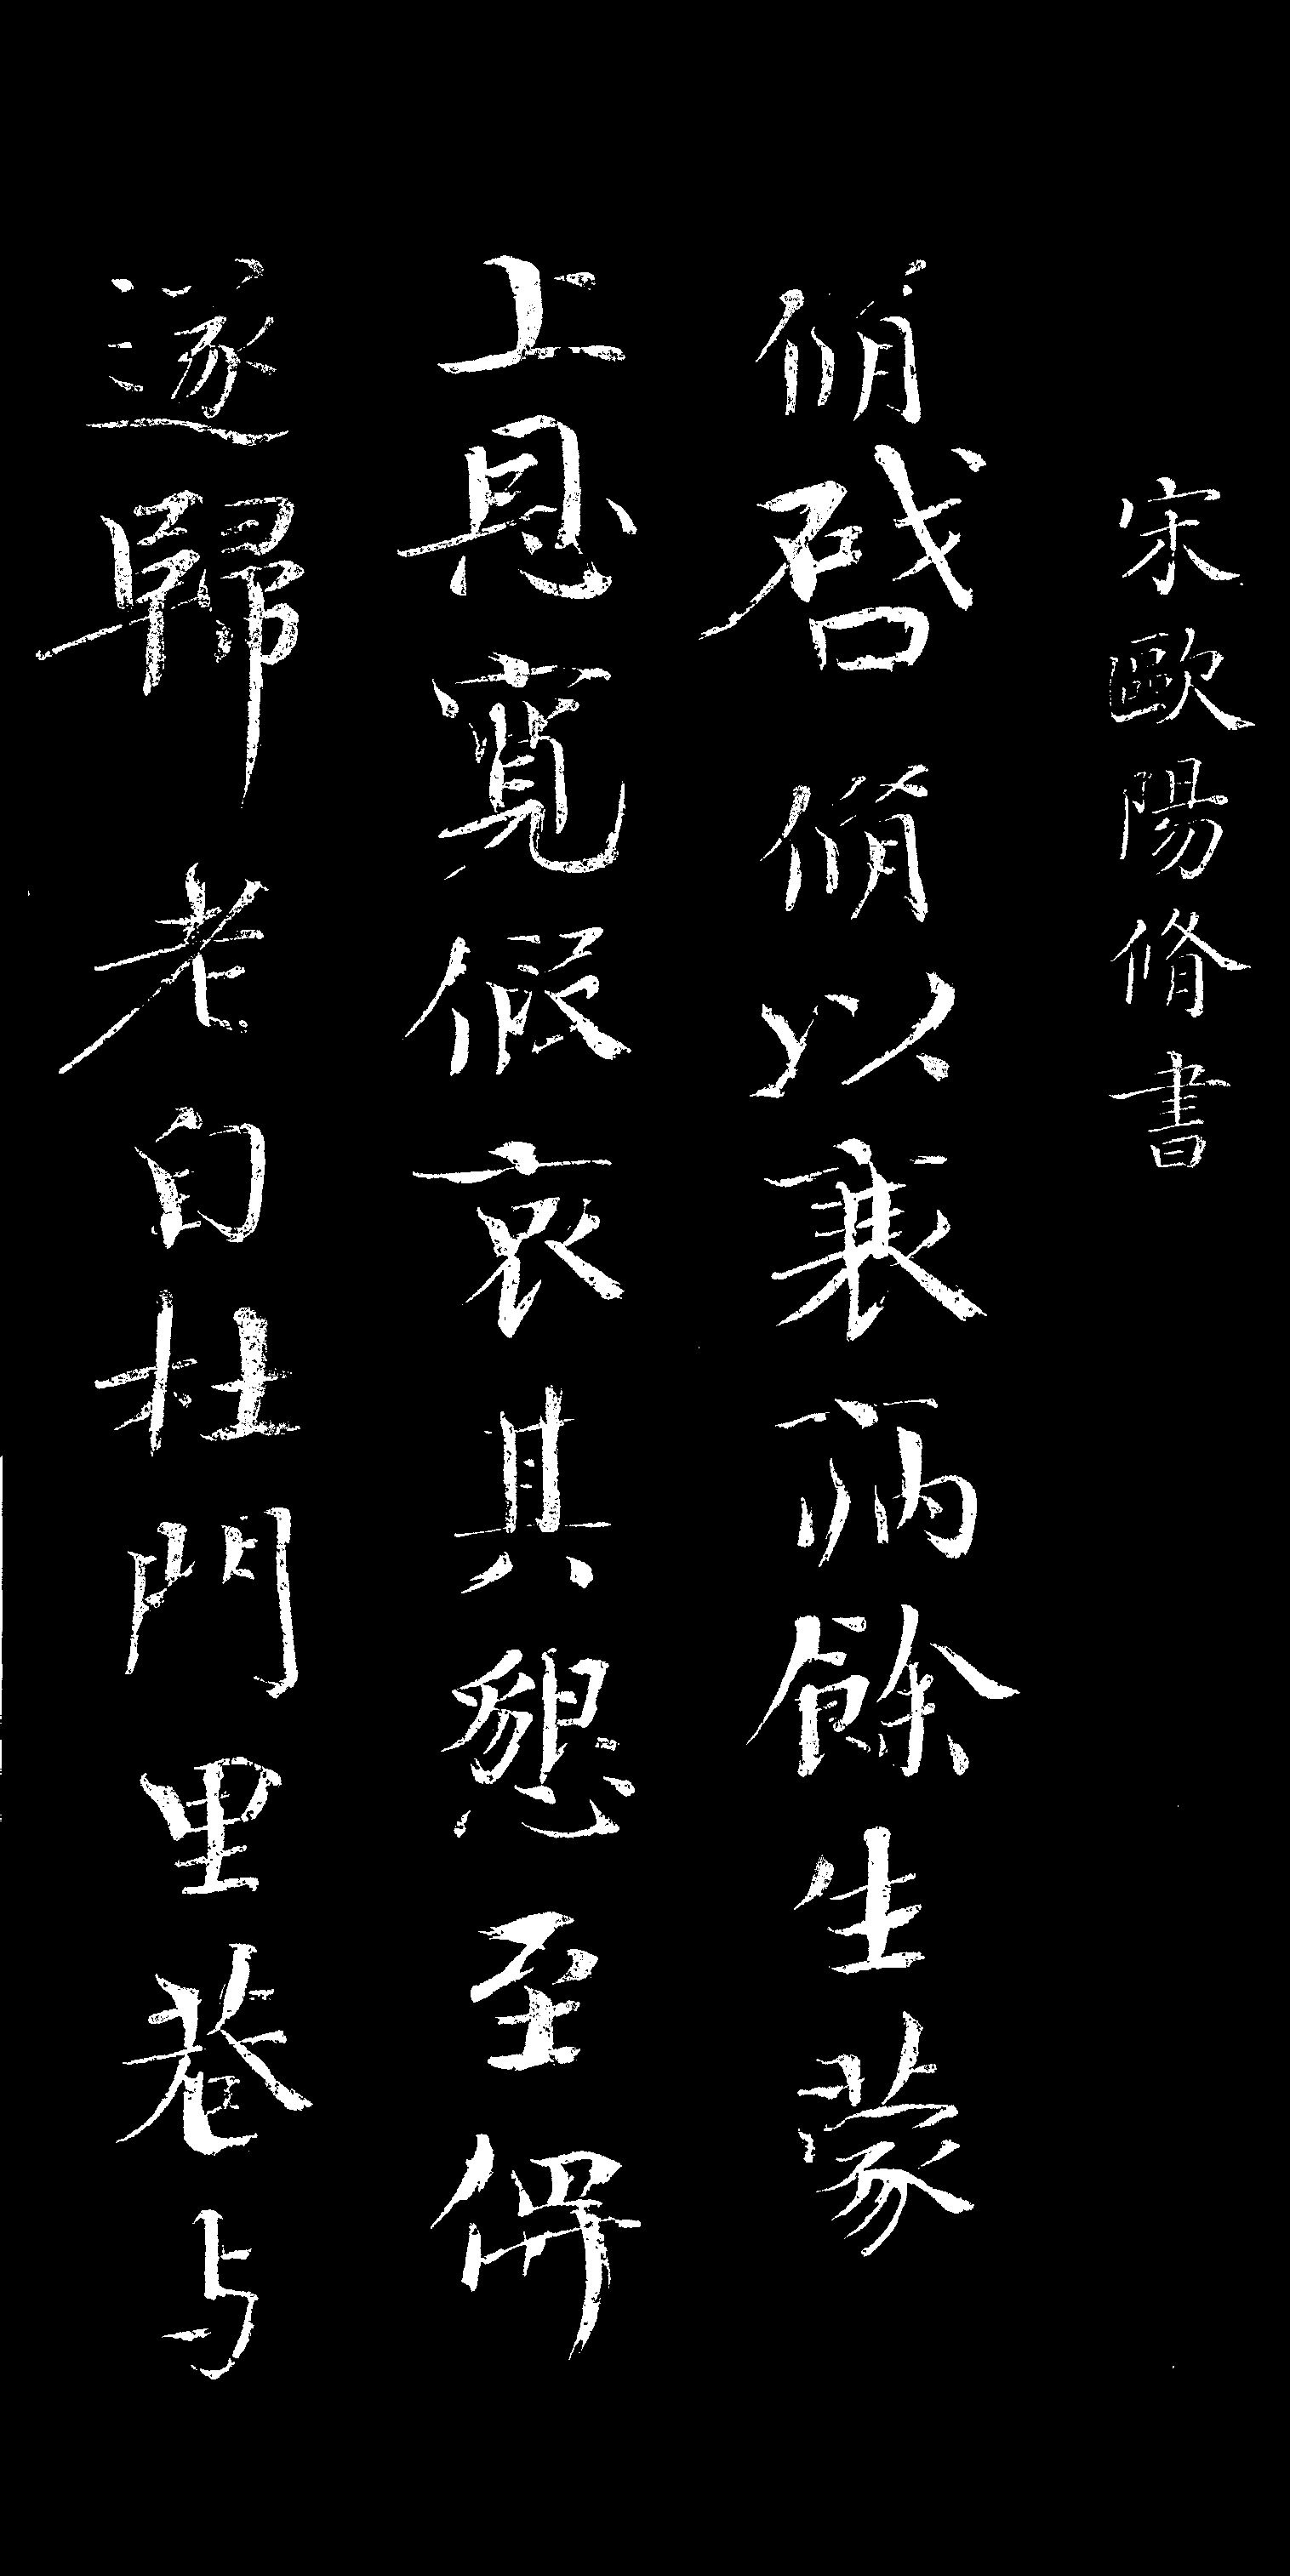 宋歐陽脩書
脩啓脩以衰病餘生蒙
上恩寬假哀其懇至俾
遂歸老自杜門里巷与